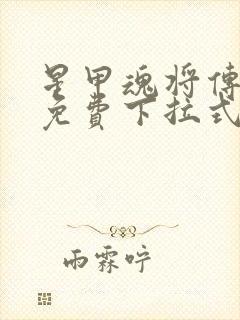 星甲魂将傳
免費下拉式
雨霖咛